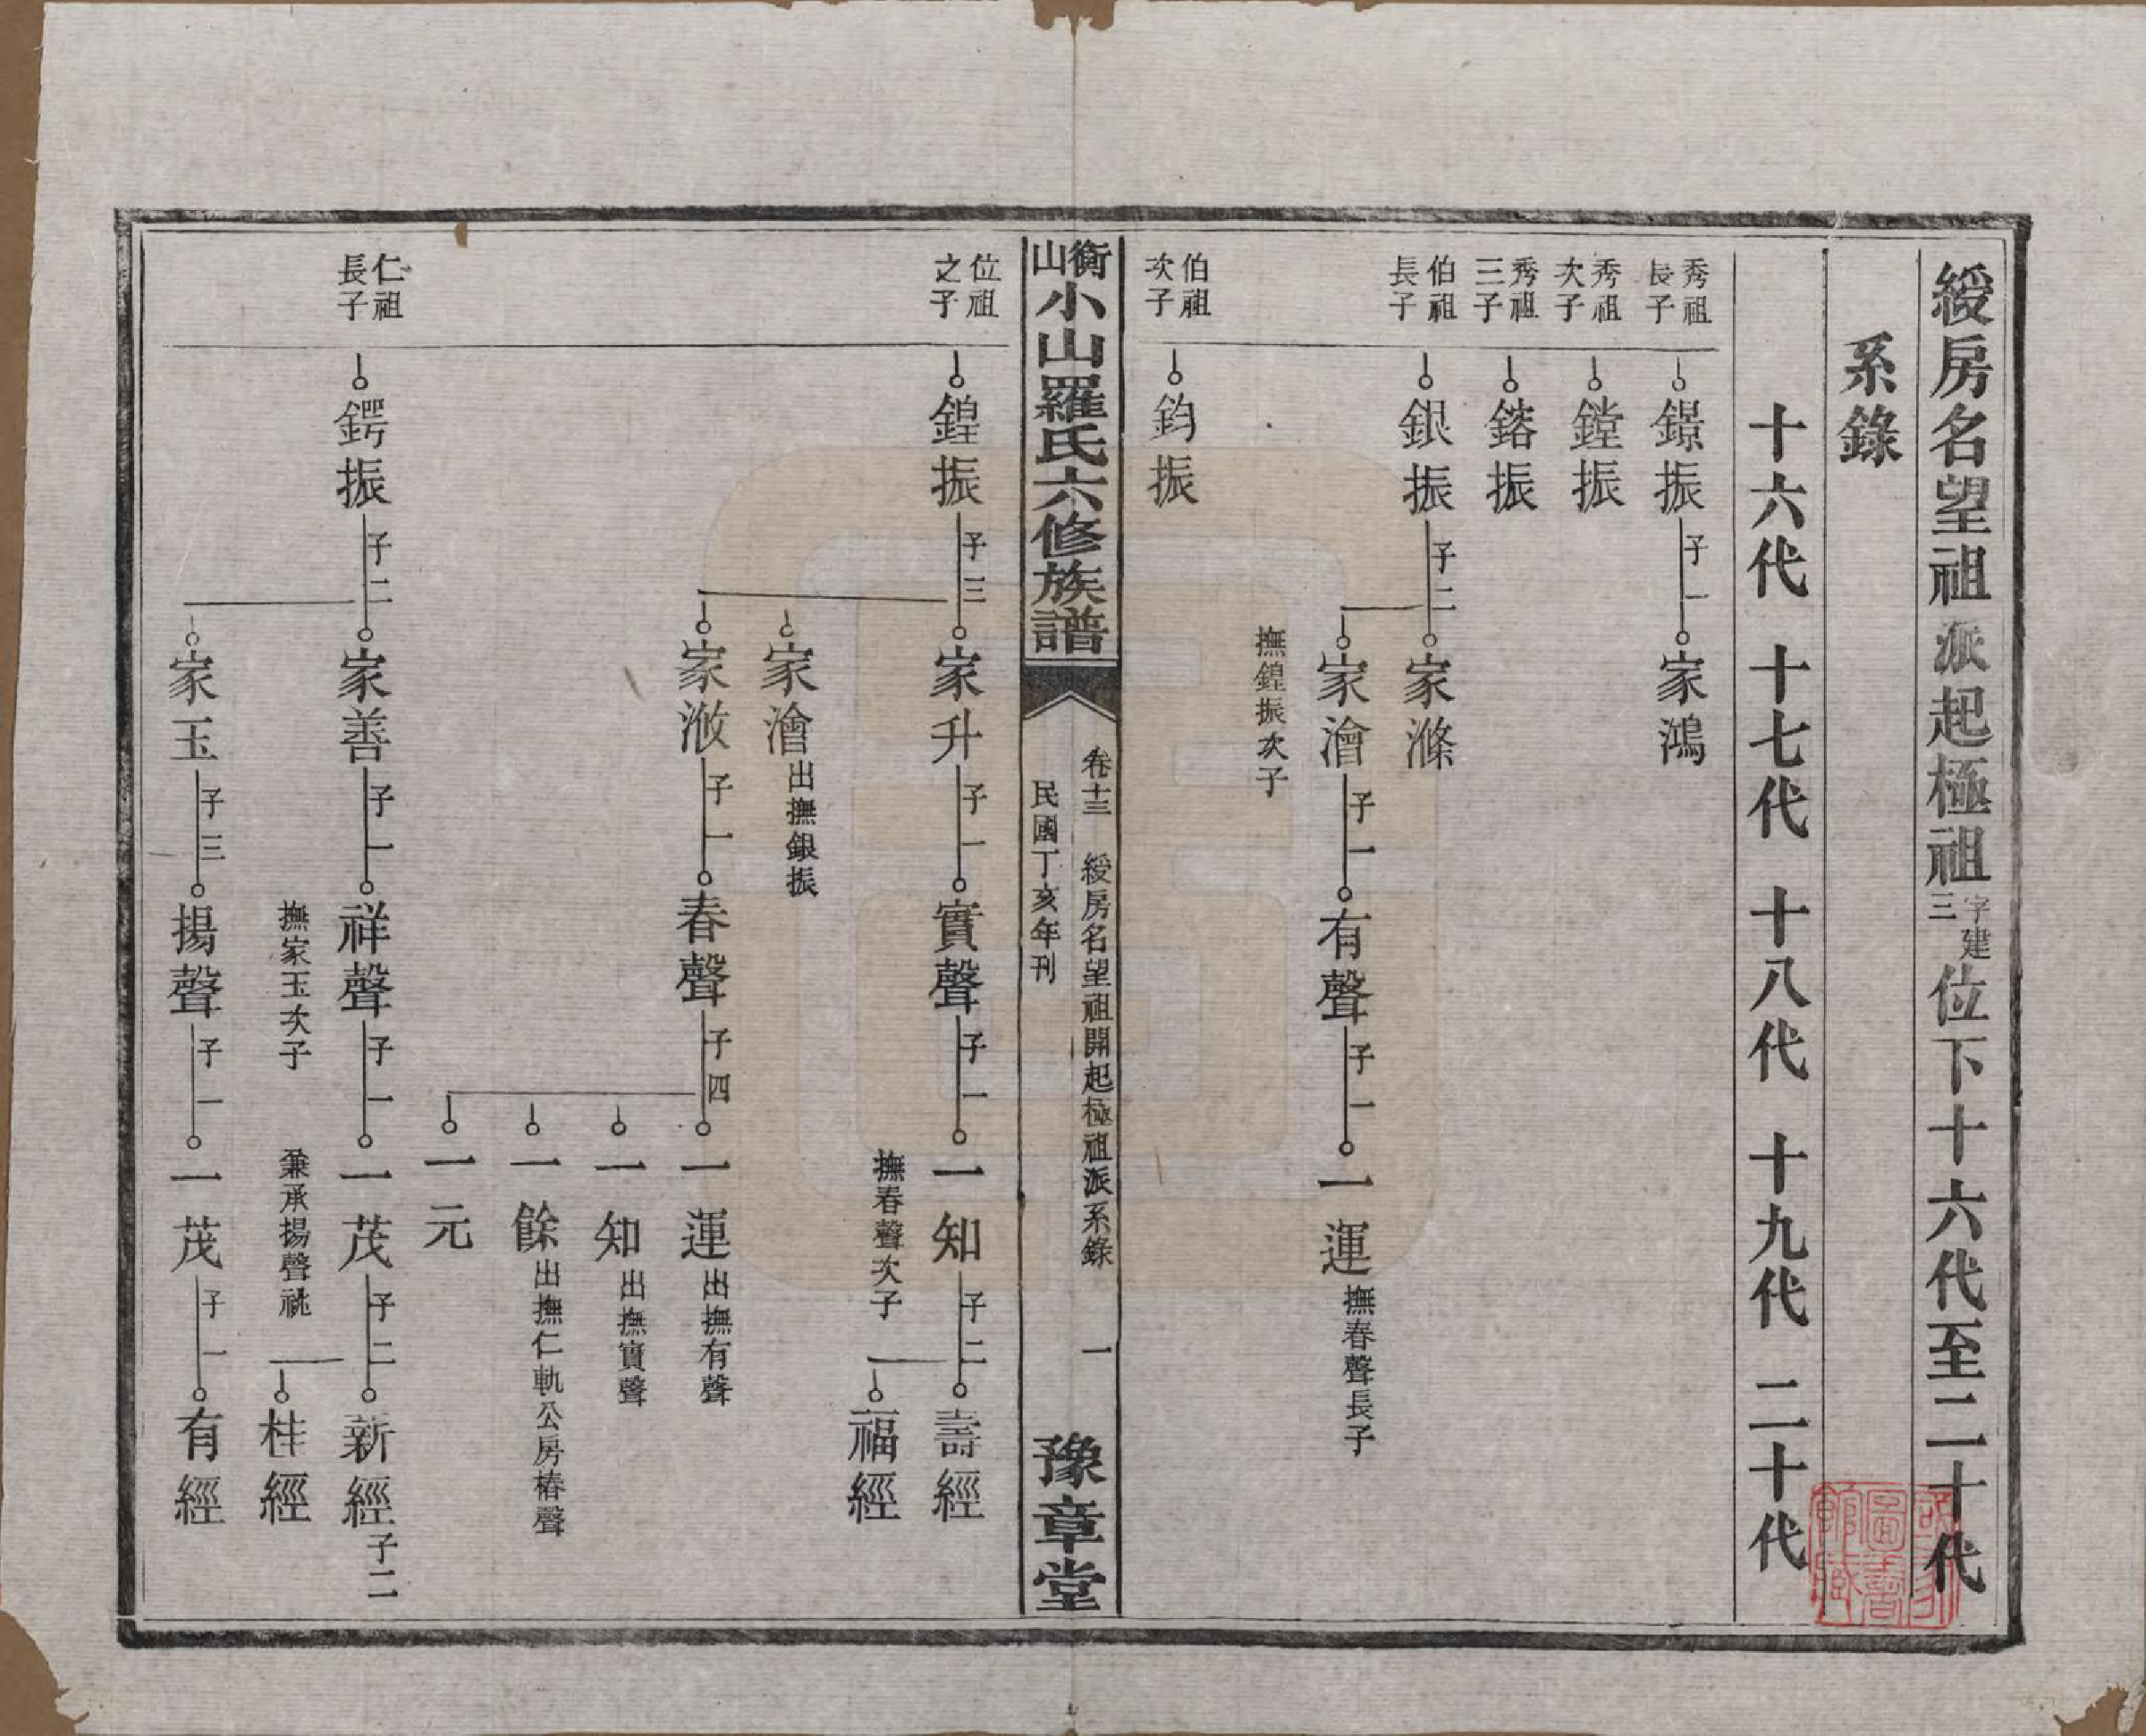 綬房名望祖派起極祖字建三位下十六代至二十代
系錄
十六代 十七代 十八代 十九代 二十代
秀祖長子
鐛振 子一 家鴻
秀祖次子
鏜振
秀祖三子
鎔振
伯祖長子
銀振 子二 家滌
家澮 子一 有聲 子一 一運 撫春聲長子
撫鍠振次子
伯祖次子
鈞振
衡山小山羅氏六修族譜
卷十三 綬房名望祖開起極祖派系錄 一
民國丁亥年刊
豫章堂
位祖之子
鍠振 子三 家升 子一 實聲 子一 一知 子二 壽經
撫春聲次子
福經
家澮 出撫銀振
家滧 子一 春聲 子四 一運 出撫有聲
一知 出撫實聲
一餘 出撫仁軌公房椿聲
一元
仁祖長子
鍔振 子二 家善 子一 祥聲 子一 一茂 子二 新經 子二
撫家玉次子
兼承揚聲祧
桂經
家玉 子三 揚聲 子一 一茂 子一 有經
國家圖書館藏